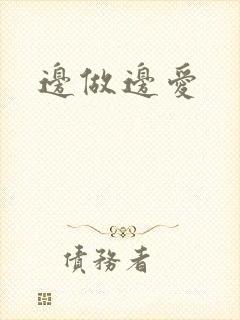 邊做邊愛
債務者